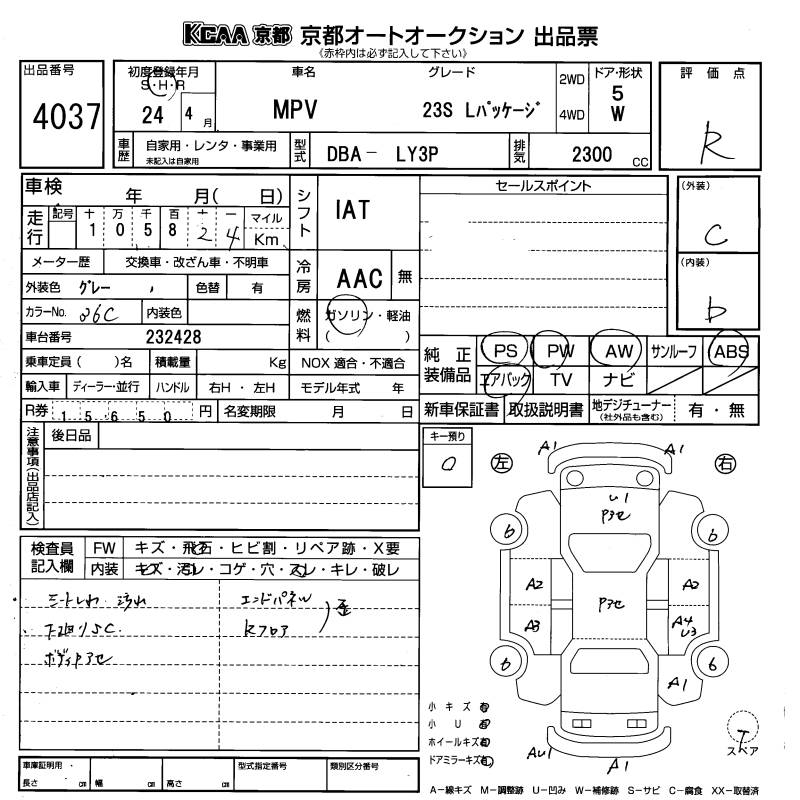 KCAA 京都 京都オートオークション 出品票
《赤枠内は必ず記入して下さい》
出品番号
4037
初度登録年月
S・H・R
24 4 月
車名
MPV
グレード
23S Lパッケージ
2WD
4WD
ドア・形状
5
W
評価点
R
車歴
自家用・レンタ・事業用
未記入は自家用
型式
DBA－ LY3P
排気
2300 CC
車検 年 月( 日)
走行
記号 十 万 千 百 十 一 マイル
1 0 5 8 2 4 Km
メーター歴 交換車・改ざん車・不明車
外装色 グレー 色替 有
カラーNo. 26C 内装色
車台番号 232428
乗車定員( )名 積載量 Kg NOX 適合・不適合
輸入車 ディーラー・並行 ハンドル 右H・左H モデル年式 年
R券 15650 円 名変期限 月 日
シフト
IAT
冷房
AAC 無
燃料
ガソリン・軽油
( )
セールスポイント
(外装)
C
(内装)
D
純正装備品
PS PW AW サンルーフ ABS
エアバック TV ナビ
新車保証書 取扱説明書 地デジチューナー
(社外品も含む)
有・無
注意事項(出品店記入)
後日品
キー預り
0
左
右
検査員記入欄
FW キズ・飛石・ヒビ割・リペア跡・X要
内装 キズ・汚レ・コゲ・穴・スレ・キレ・破レ
シートしわ 汚れ
下廻りSC.
ボディPアセ
エンドパネル
Rフロア
歪
A1
A1
U1
Pアセ
6
6
A2
Pアセ
A2
A3
A4
U3
6
6
A1
AU1
A1
小キズ有
小U有
ホイールキズ有
ドアミラーキズ有
T
スペア
車庫証明用・
長さ cm 幅 cm 高さ cm
型式指定番号
類別区分番号
A－線キズ M－調整跡 U－凹み W－補修跡 S－サビ C－腐食 XX－取替済